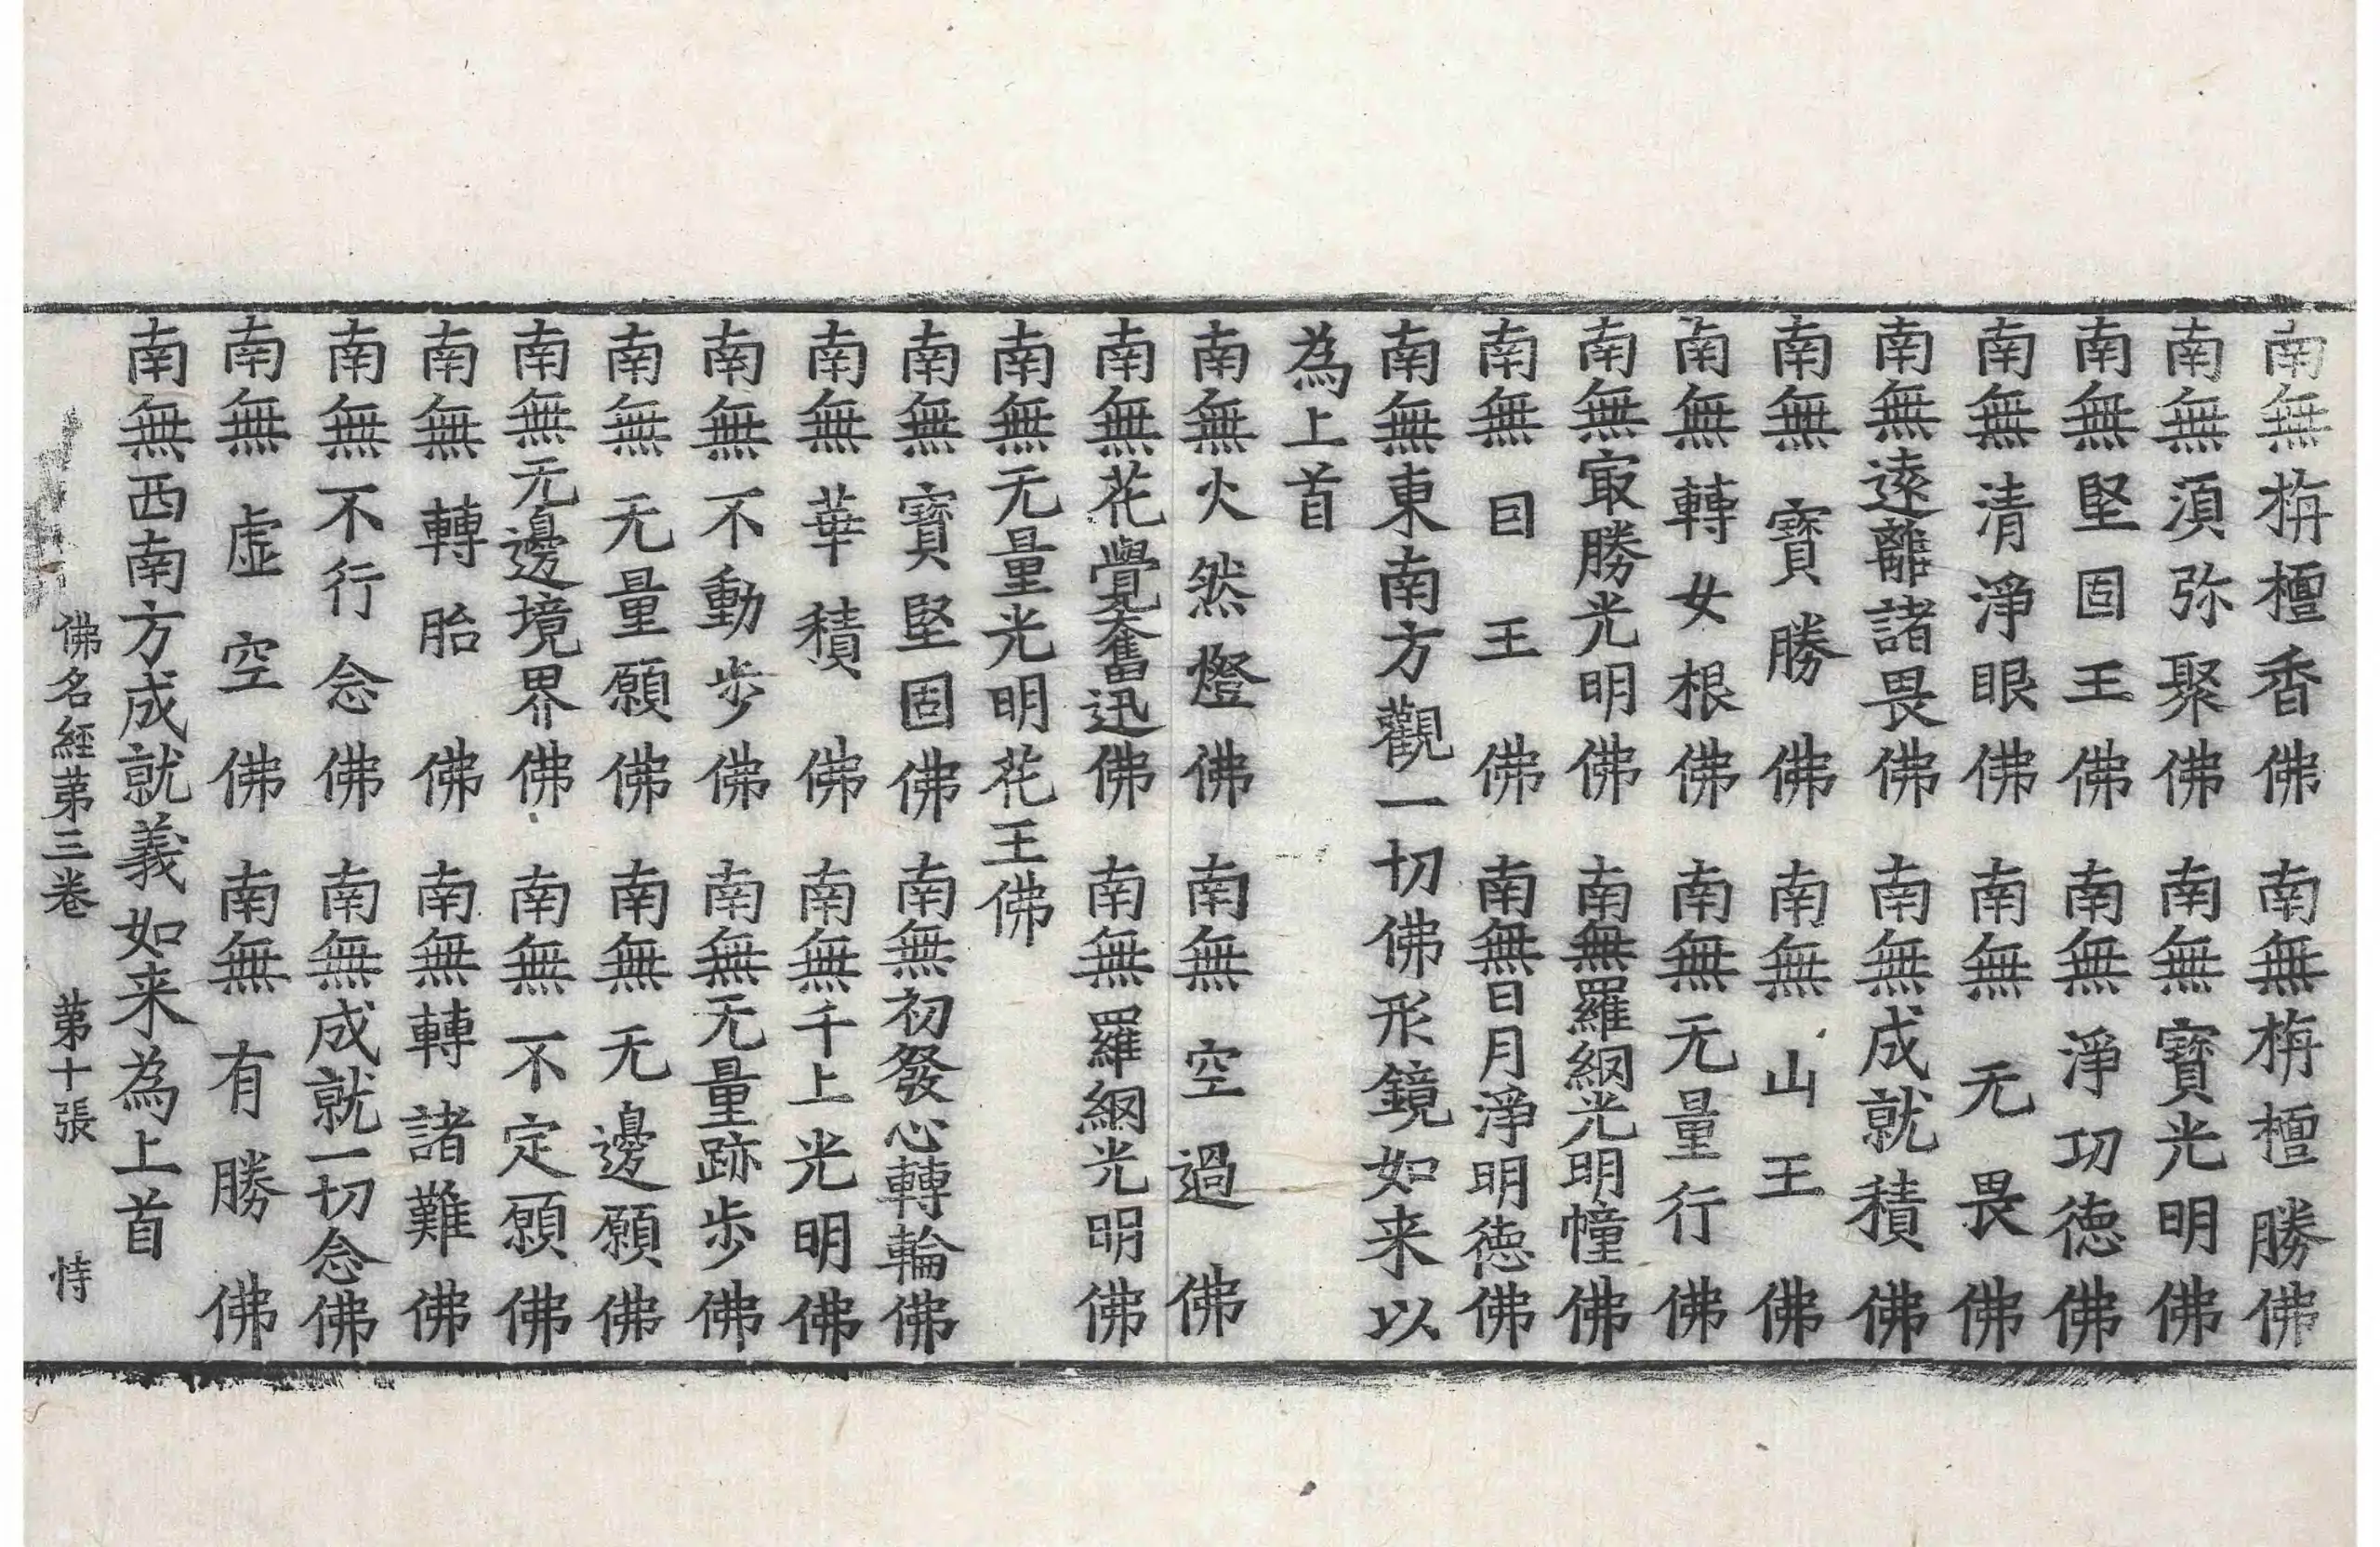 南無栴檀香佛　南無栴檀勝佛
南無湏弥聚佛　南無寶光明佛
南無堅固王佛　南無淨功德佛
南無清淨眼佛　南無无畏佛
南無遠離諸畏佛　南無成就積佛
南無寶勝佛　南無山王佛
南無轉女根佛　南無无量行佛
南無㝡勝光明佛　南無羅網光明幢佛
南無因王佛　南無日月淨明德佛
南無東南方觀一切佛形鏡如来以
為上首
南無火然燈佛　南無空過佛
南無花覺奮迅佛　南無羅網光明佛
南無无量光明花王佛
南無寶堅固佛　南無初發心轉輪佛
南無華積佛　南無千上光明佛
南無不動步佛　南無无量跡步佛
南無无量願佛　南無无邊願佛
南無无邊境界佛　南無不定願佛
南無轉胎佛　南無轉諸難佛
南無不行念佛　南無成就一切念佛
南無虛空佛　南無有勝佛
南無西南方成就義如来為上首
佛名經第三卷　第十張　恃